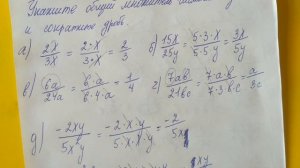 Укажите общий множитель
и сократите дробь
а) 2x/3x = 2·x/3·x = 2/3 б) 15x/25y = 5·3·x/5·5·y = 3x/5y
в) 6a/24a = 6·a/6·4·a = 1/4 г) 7ab/21bc = 7·a·b/7·3·b·c = a/3c
д) -2xy/5x²y = -2·x·y/5·x·x·y = -2/5x
xy